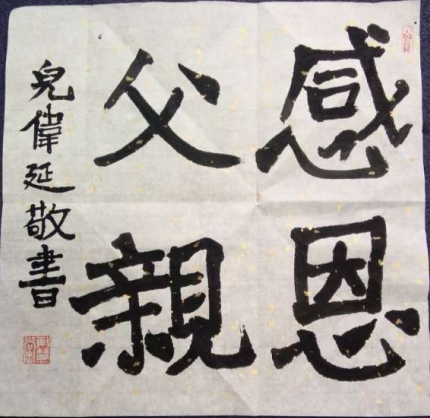 感恩
父親
兒偉延敬書